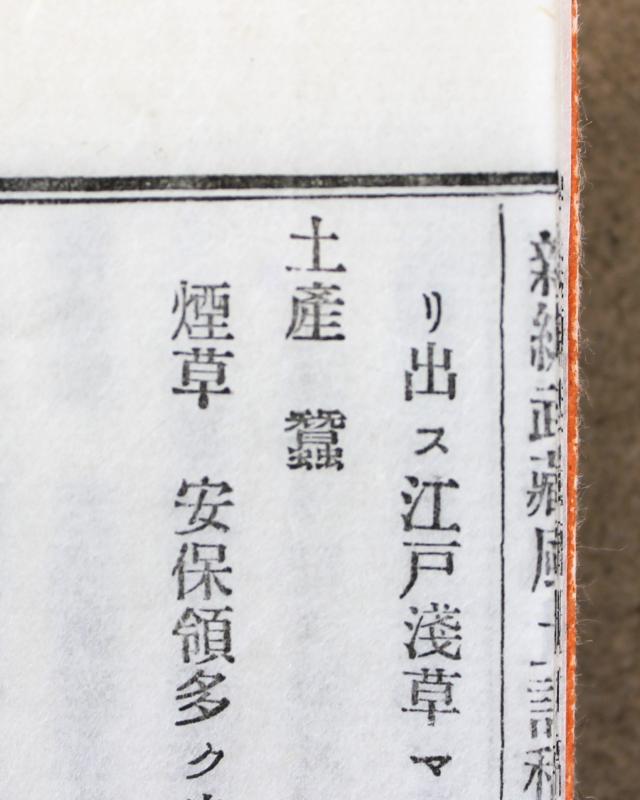 新編武藏風土記稿
リ出ス江戸淺草マ
土產 蠶
煙草 安保領多ク